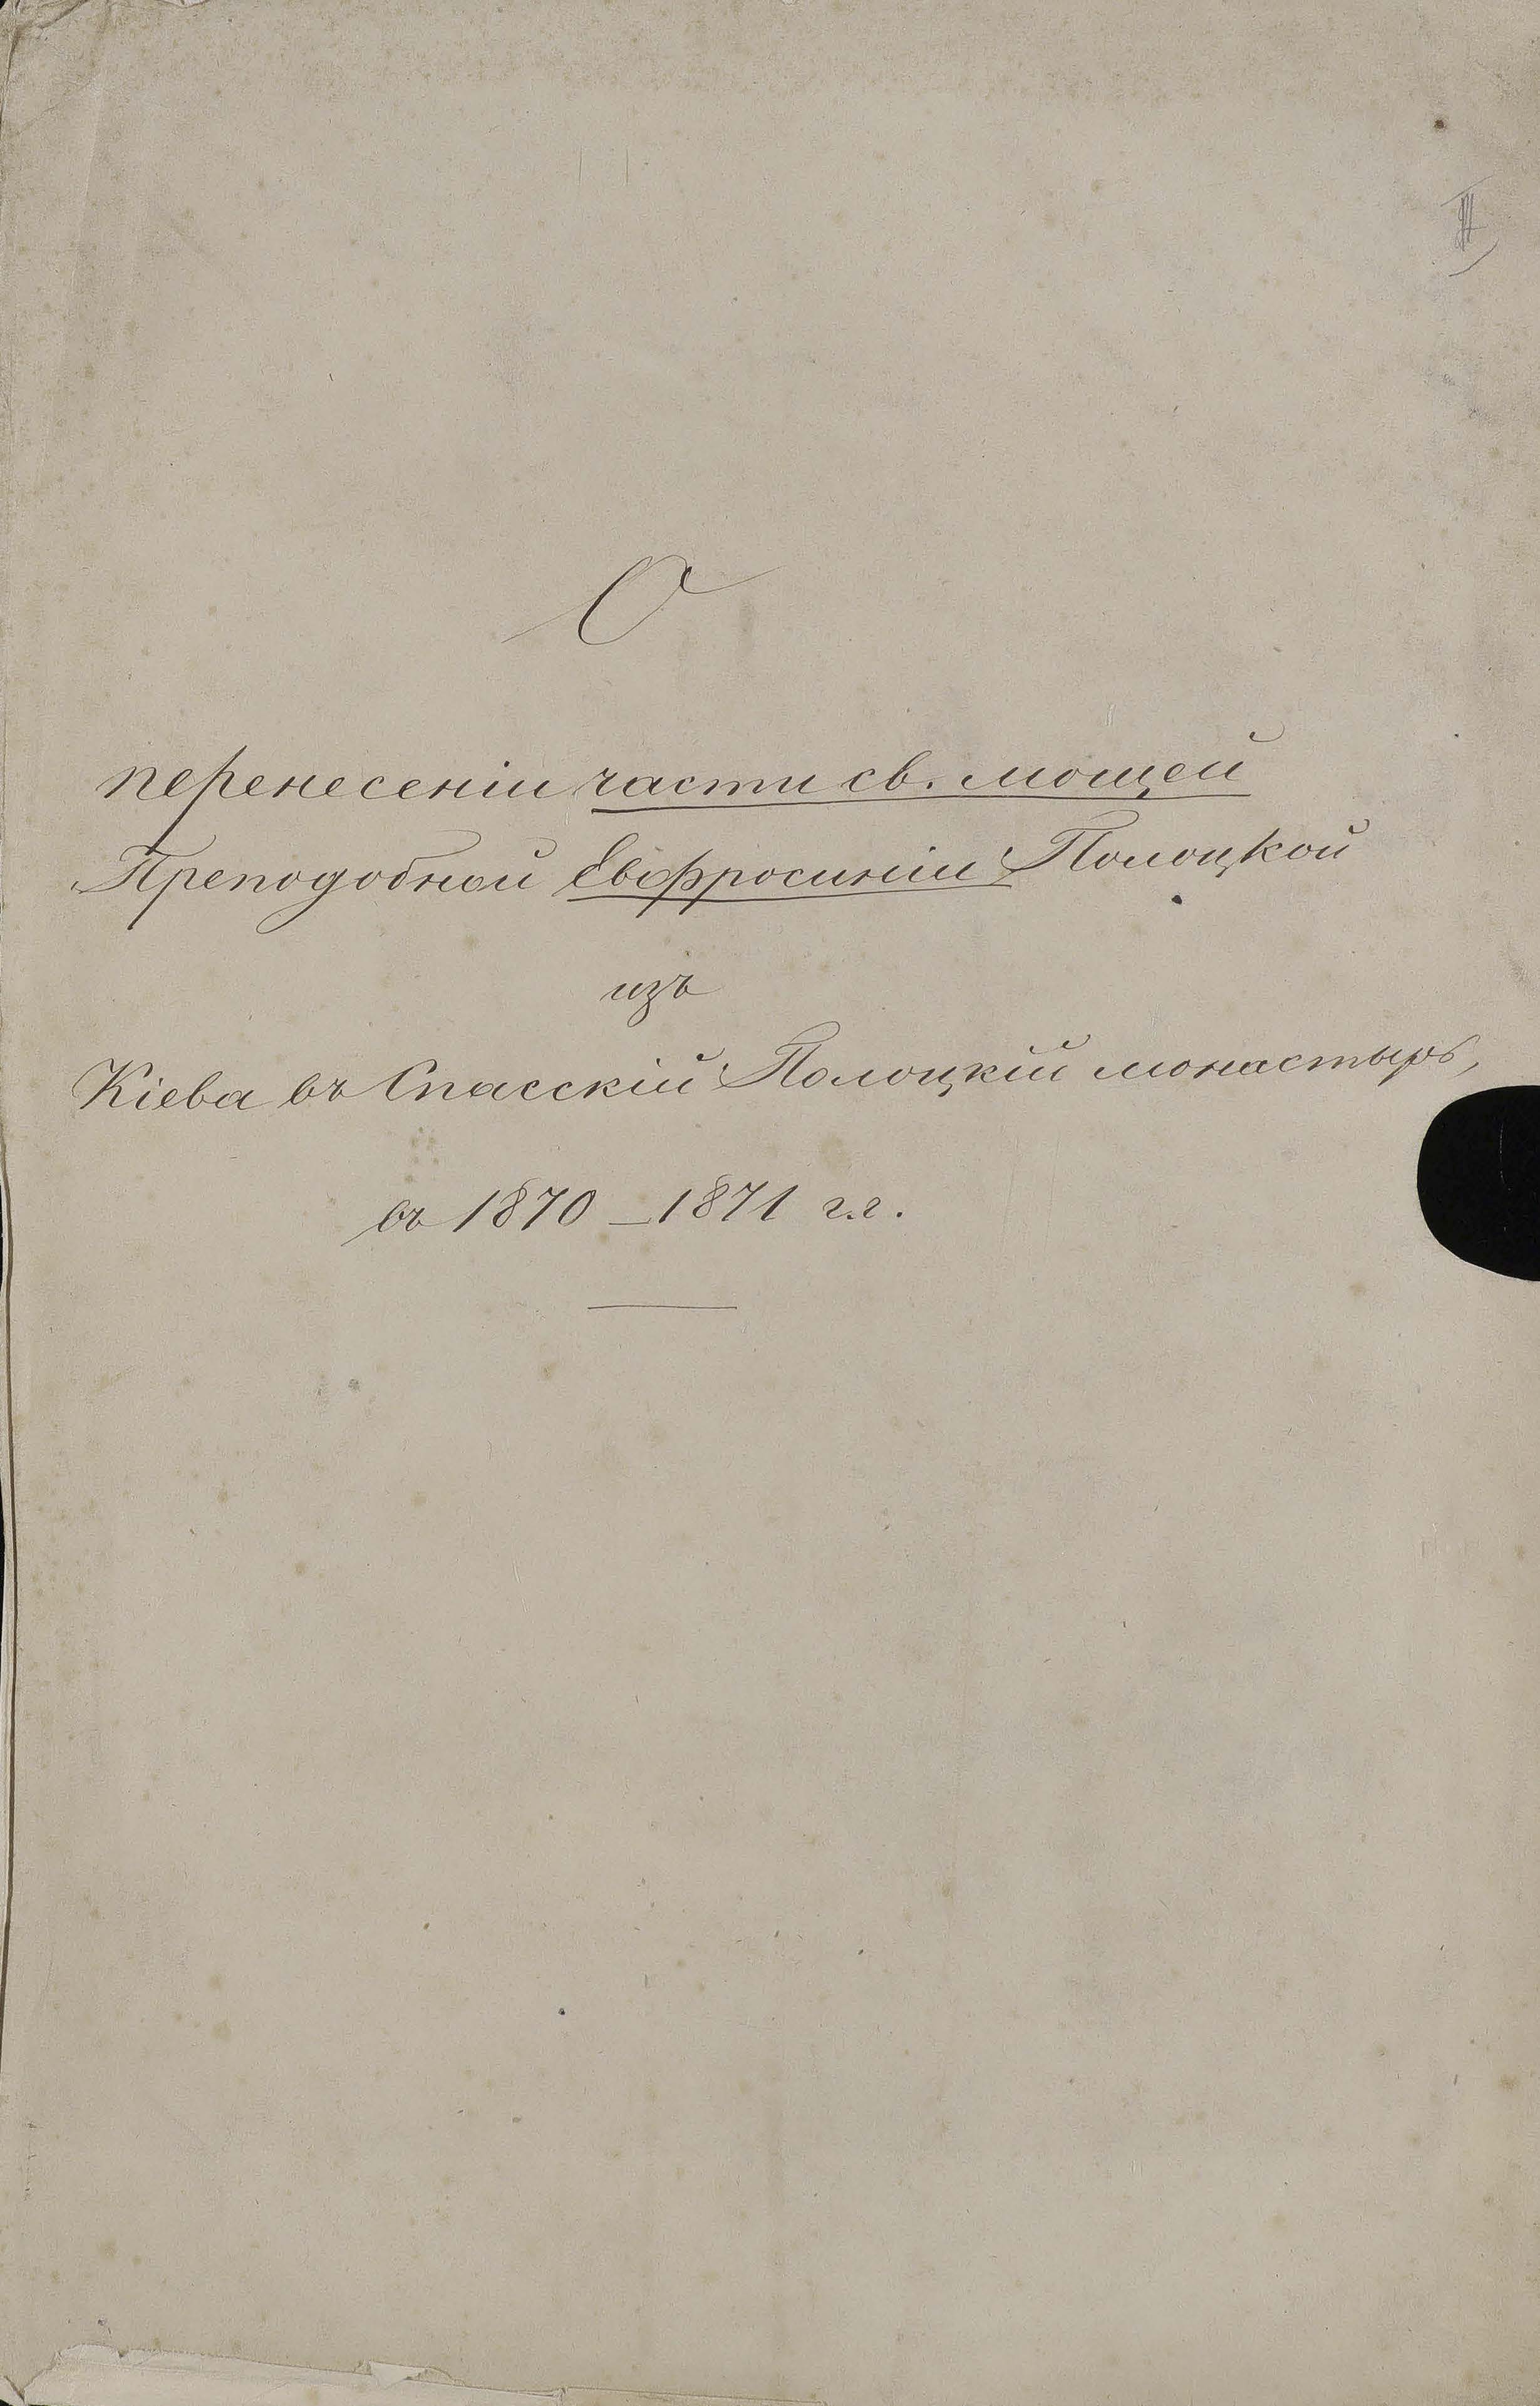 О
перенесеніи части св. мощей
Преподобной Евфросиніи Полоцкой
изъ
Кіева въ Спасскій Полоцкій монастырь,
въ 1870 – 1871 г.г.